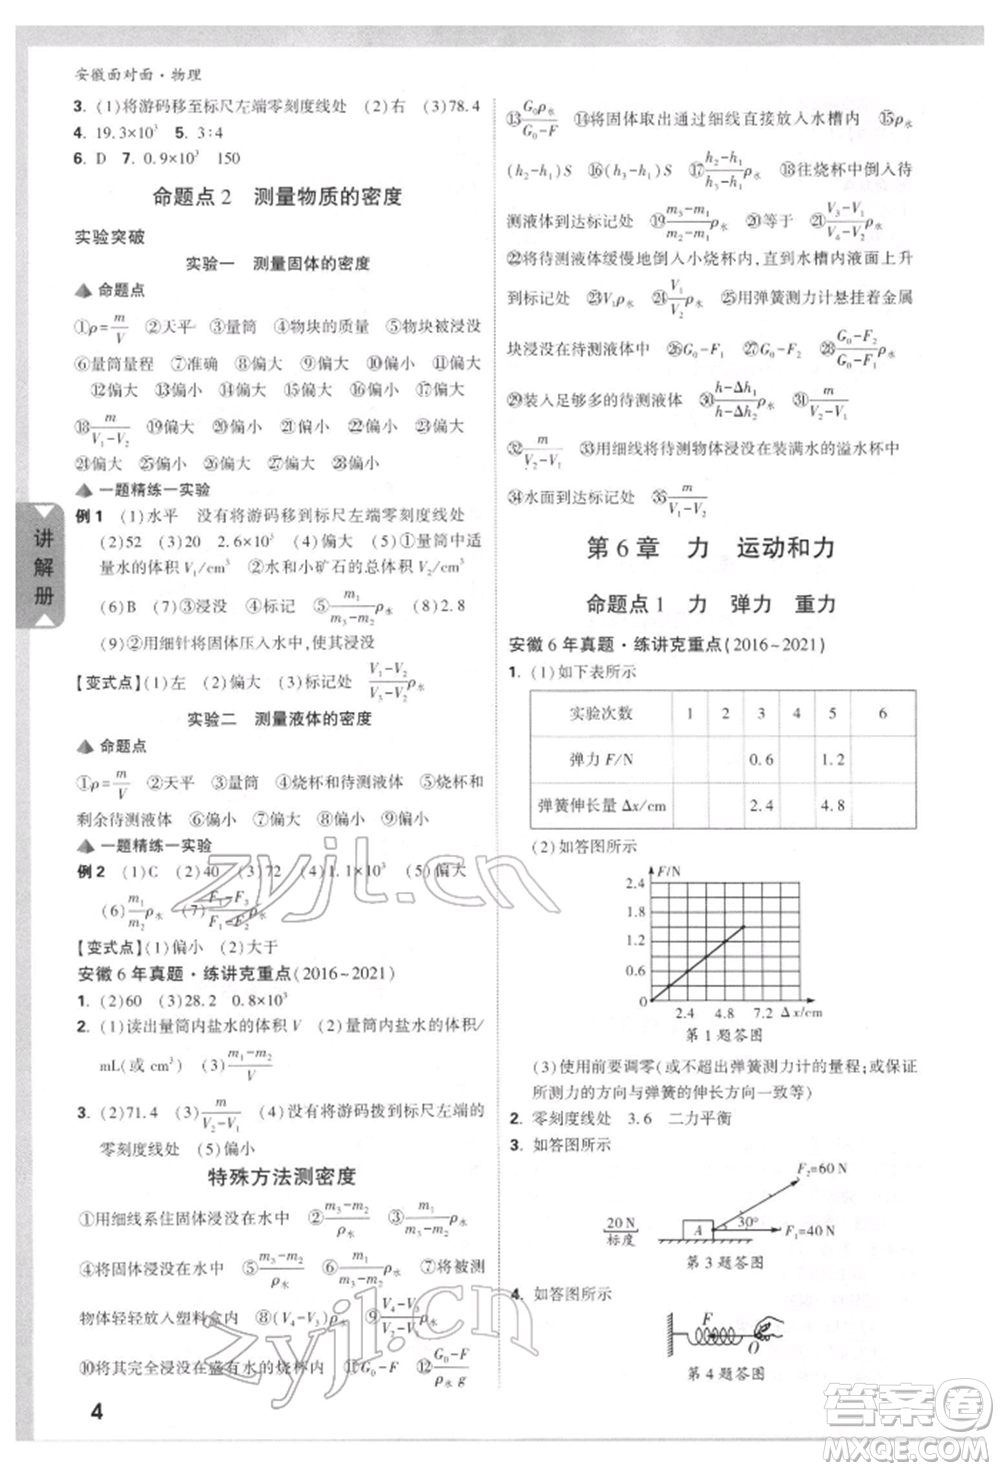 安徽面对面·物理
3. (1)将游码移至标尺左端零刻度线处 (2)右 (3)78.4
4. 19.3×10³ 5. 3:4
6. D 7. 0.9×10³ 150
命题点2 测量物质的密度
实验突破
实验一 测量固体的密度
命题点
①ρ=m/V ②天平 ③量筒 ④物块的质量 ⑤物块被浸没
⑥量筒量程 ⑦准确 ⑧偏大 ⑨偏大 ⑩偏小 ⑪偏大
⑫偏大 ⑬偏大 ⑭偏小 ⑮偏大 ⑯偏小 ⑰偏大
⑱m/(V₁-V₂) ⑲偏大 ⑳偏小 ㉑偏大 ㉒偏大 ㉓偏大
㉔偏大 ㉕偏小 ㉖偏大 ㉗偏大 ㉘偏大
一题精练一实验
例1 (1)水平 没有将游码移到标尺左端零刻度线处
(2)52 (3)20 2.6×10³ (4)偏大 (5)①量筒中装适
量水的体积V₁/cm³ ②水和小矿石的总体积V₂/cm³
(6)B (7)③浸没 ④标记 ⑤m₁/(m₃-m₂)ρ水 (8)2.8
(9)②用细针将固体压入水中,使其浸没
【变式点】(1)左 (2)偏大 (3)标记处 (V₁-V₂)/(V₃-V₂)ρ水
实验二 测量液体的密度
命题点
①ρ=m/V ②天平 ③量筒 ④烧杯和待测液体 ⑤烧杯和
剩余待测液体 ⑥偏小 ⑦偏大 ⑧偏大 ⑨偏小
一题精练一实验
例2 (1)C (2)40 (3)72 (4)1.1×10³ (5)偏大
(6)m₁/m₂ρ水 (7)(F₁-F₃)/(F₁-F₂)ρ水
【变式点】(1)偏小 (2)大于
安徽6年真题·练讲克重点(2016~2021)
1. (2)60 (3)28.2 0.8×10³
2. (1)读出量筒内盐水的体积V (2)量筒内盐水的体积/
mL(或cm³) (3)(m₁-m₂)/V
3. (2)71.4 (3)m/(V₂-V₁) (4)没有将游码拨到标尺左端的
零刻度线处 (5)偏小
特殊方法测密度
①用细线系住固体浸没在水中 ②(m₃-m₂)/ρ水 ③m₁/(m₃-m₂)ρ水
④将固体浸没在水中 ⑤(m₃-m₂)/ρ水 ⑥m₁/(m₃-m₂)ρ水 ⑦将被测
物体轻轻放入塑料盒内 ⑧(V₄-V₃)ρ水 ⑨(V₄-V₃)/(V₅-V₃)ρ水
⑩将其完全浸没在盛有水的烧杯内 ⑪G₀-F ⑫(G₀-F)/(ρ水g)
⑬G₀ρ水/(G₀-F) ⑭将固体取出通过细线直接放入水槽内 ⑮ρ水
(h₂-h₁)S ⑯(h₃-h₁)S ⑰(h₂-h₁)/(h₃-h₁)ρ水 ⑱往烧杯中倒入待
测液体到达标记处 ⑲(m₃-m₁)/(m₂-m₁)ρ水 ⑳等于 ㉑(V₃-V₂)/(V₆-V₂)ρ水
㉒将待测液体缓慢地倒入小烧杯内,使水槽内液面上升
到标记处 ㉓V₁ρ水 ㉔V₁/V₂ρ水 ㉕用弹簧测力计悬挂着金属
块浸没在待测液体中 ㉖G₀-F₁ ㉗G₀-F₂ ㉘(G₀-F₂)/(G₀-F₁)ρ水
㉙装入足够多的待测液体 ㉚(h-Δh₁)/(h-Δh₂)ρ水 ㉛m/(V₂-V₁)
㉜m/(V₂-V₁) ㉝用细线将待测物体浸没在装满水的溢水杯中
㉞水面到达标记处 ㉟m/(V₁-V₂)
第6章 力 运动和力
命题点1 力 弹力 重力
安徽6年真题·练讲克重点(2016~2021)
1. (1)如下表所示
实验次数 1 2 3 4 5 6
弹力F/N 0.6 1.2
弹簧伸长量Δx/cm 2.4 4.8
(2)如答图所示
F/N
2.4
1.8
1.2
0.6
0 2.4 4.8 7.2 Δx/cm
第1题答图
(3)使用前要调零(或不超出弹簧测力计的量程;或保证
所测力的方向与弹簧的伸长方向一致等)
2. 零刻度线处 3.6 二力平衡
3. 如答图所示
F₂=60 N
20 N
标度
A 30° F₁=40 N
第3题答图
4. 如答图所示
F
O
第4题答图
讲解册
4
zyjl.cn
zyjl.cn
答案圈
MXQE.COM